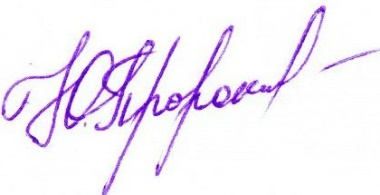 Ю.Пророков